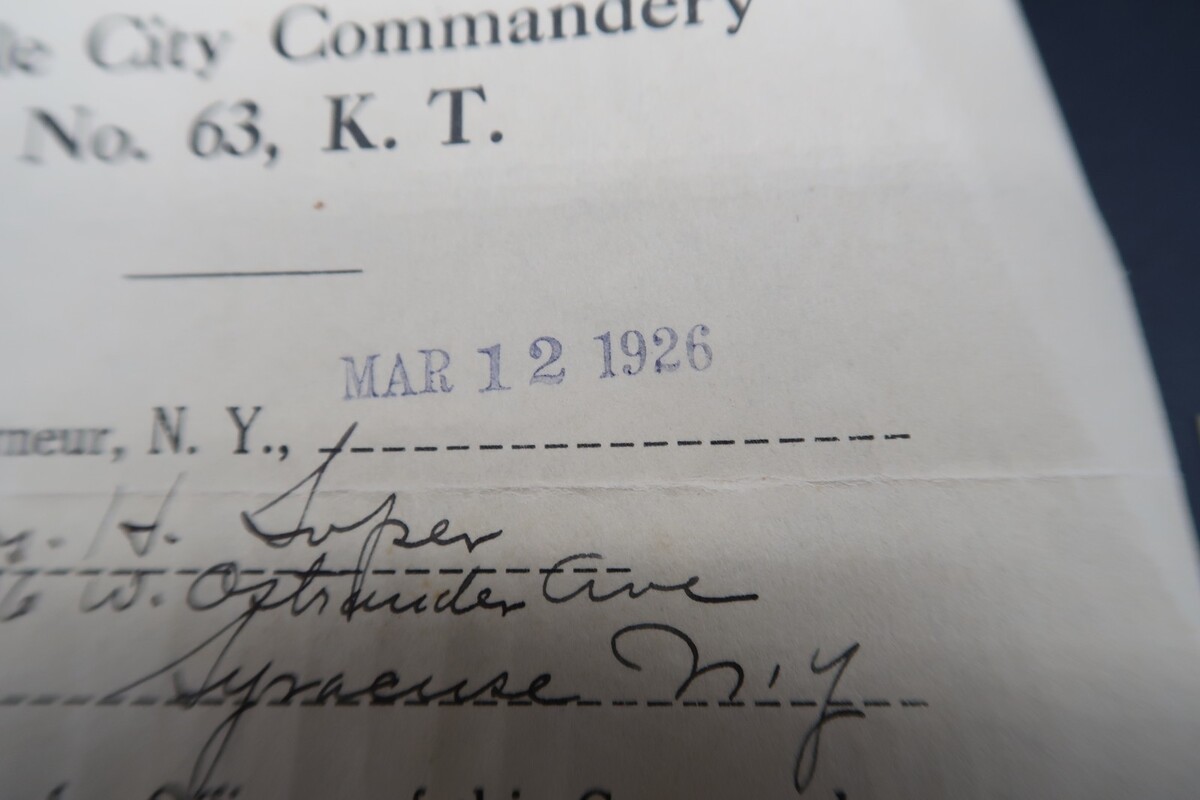 City Commandery
No. 63, K. T.
MAR 12 1926
N. Y.,
H. Soper
W. Ostrander Ave
Syracuse N.Y